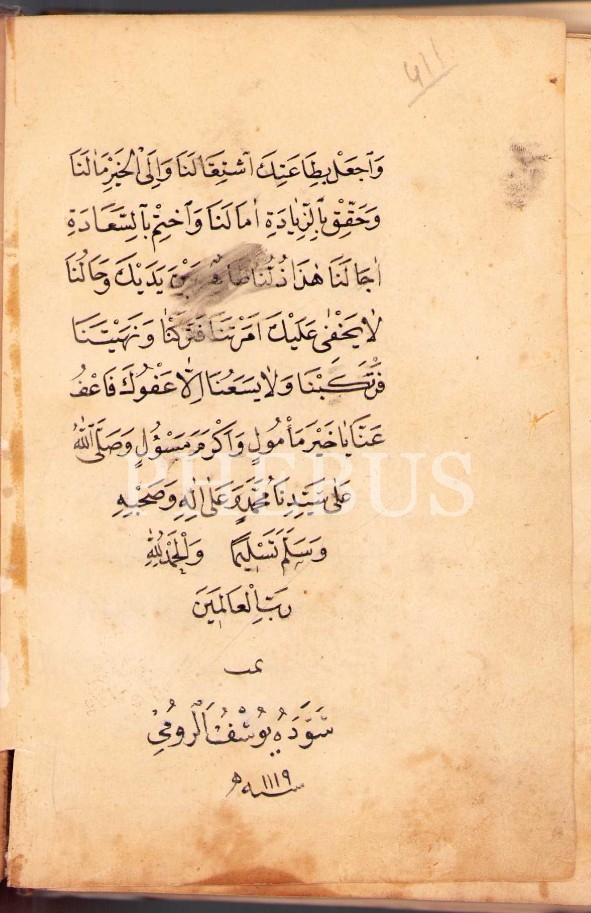 ٤١١
وَاجْعَلْ بِطَاعَتِكَ اشْتِغَالَنَا وَاِلَى الْخَيْرِ مَاٰلَنَا
وَحَقِّقْ بِالزِّيَادَةِ اٰمَالَنَا وَاخْتِمْ بِالسَّعَادَةِ
اٰجَالَنَا هٰذَا ذُلُّنَا ظَاهِرٌ بَيْنَ يَدَيْكَ وَحَالُنَا
لَا يَخْفٰى عَلَيْكَ اَمَرْتَنَا فَتَرَكْنَا وَنَهَيْتَنَا
فَرْتَكَبْنَا وَلَا يَسَعُنَا اِلَّا عَفْوُكَ فَاعْفُ
عَنَّا يَا خَيْرَ مَأْمُولٍ وَاَكْرَمَ مَسْؤُلٍ وَصَلَّى اللّٰهُ
عَلٰى سَيِّدِنَا مُحَمَّدٍ وَعَلٰى اٰلِهِ وَصَحْبِهِ
وَسَلَّمَ تَسْلِيمًا وَالْحَمْدُ لِلّٰهِ
رَبِّ الْعَالَمِينَ
تمت
سَوَّدَهُ يُوسُفُ الرُّومِي
سنه ١١١٩ هـ
PHEBUS